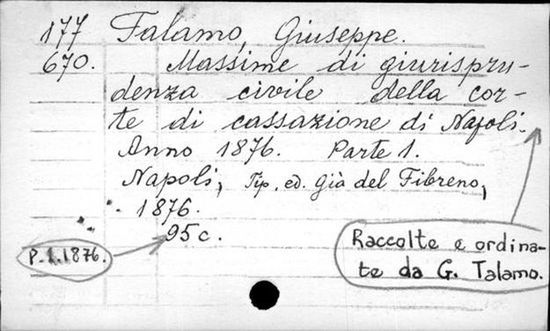 177 Talamo, Giuseppe.
670. Massime di giurispru-
denza civile della cor-
te di cassazione di Napoli.
Anno 1876. Parte 1.
Napoli, Tip. ed. già del Fibreno,
1876.
95 c.
P. 1.1876.
Raccolte e ordina-
te da G. Talamo.